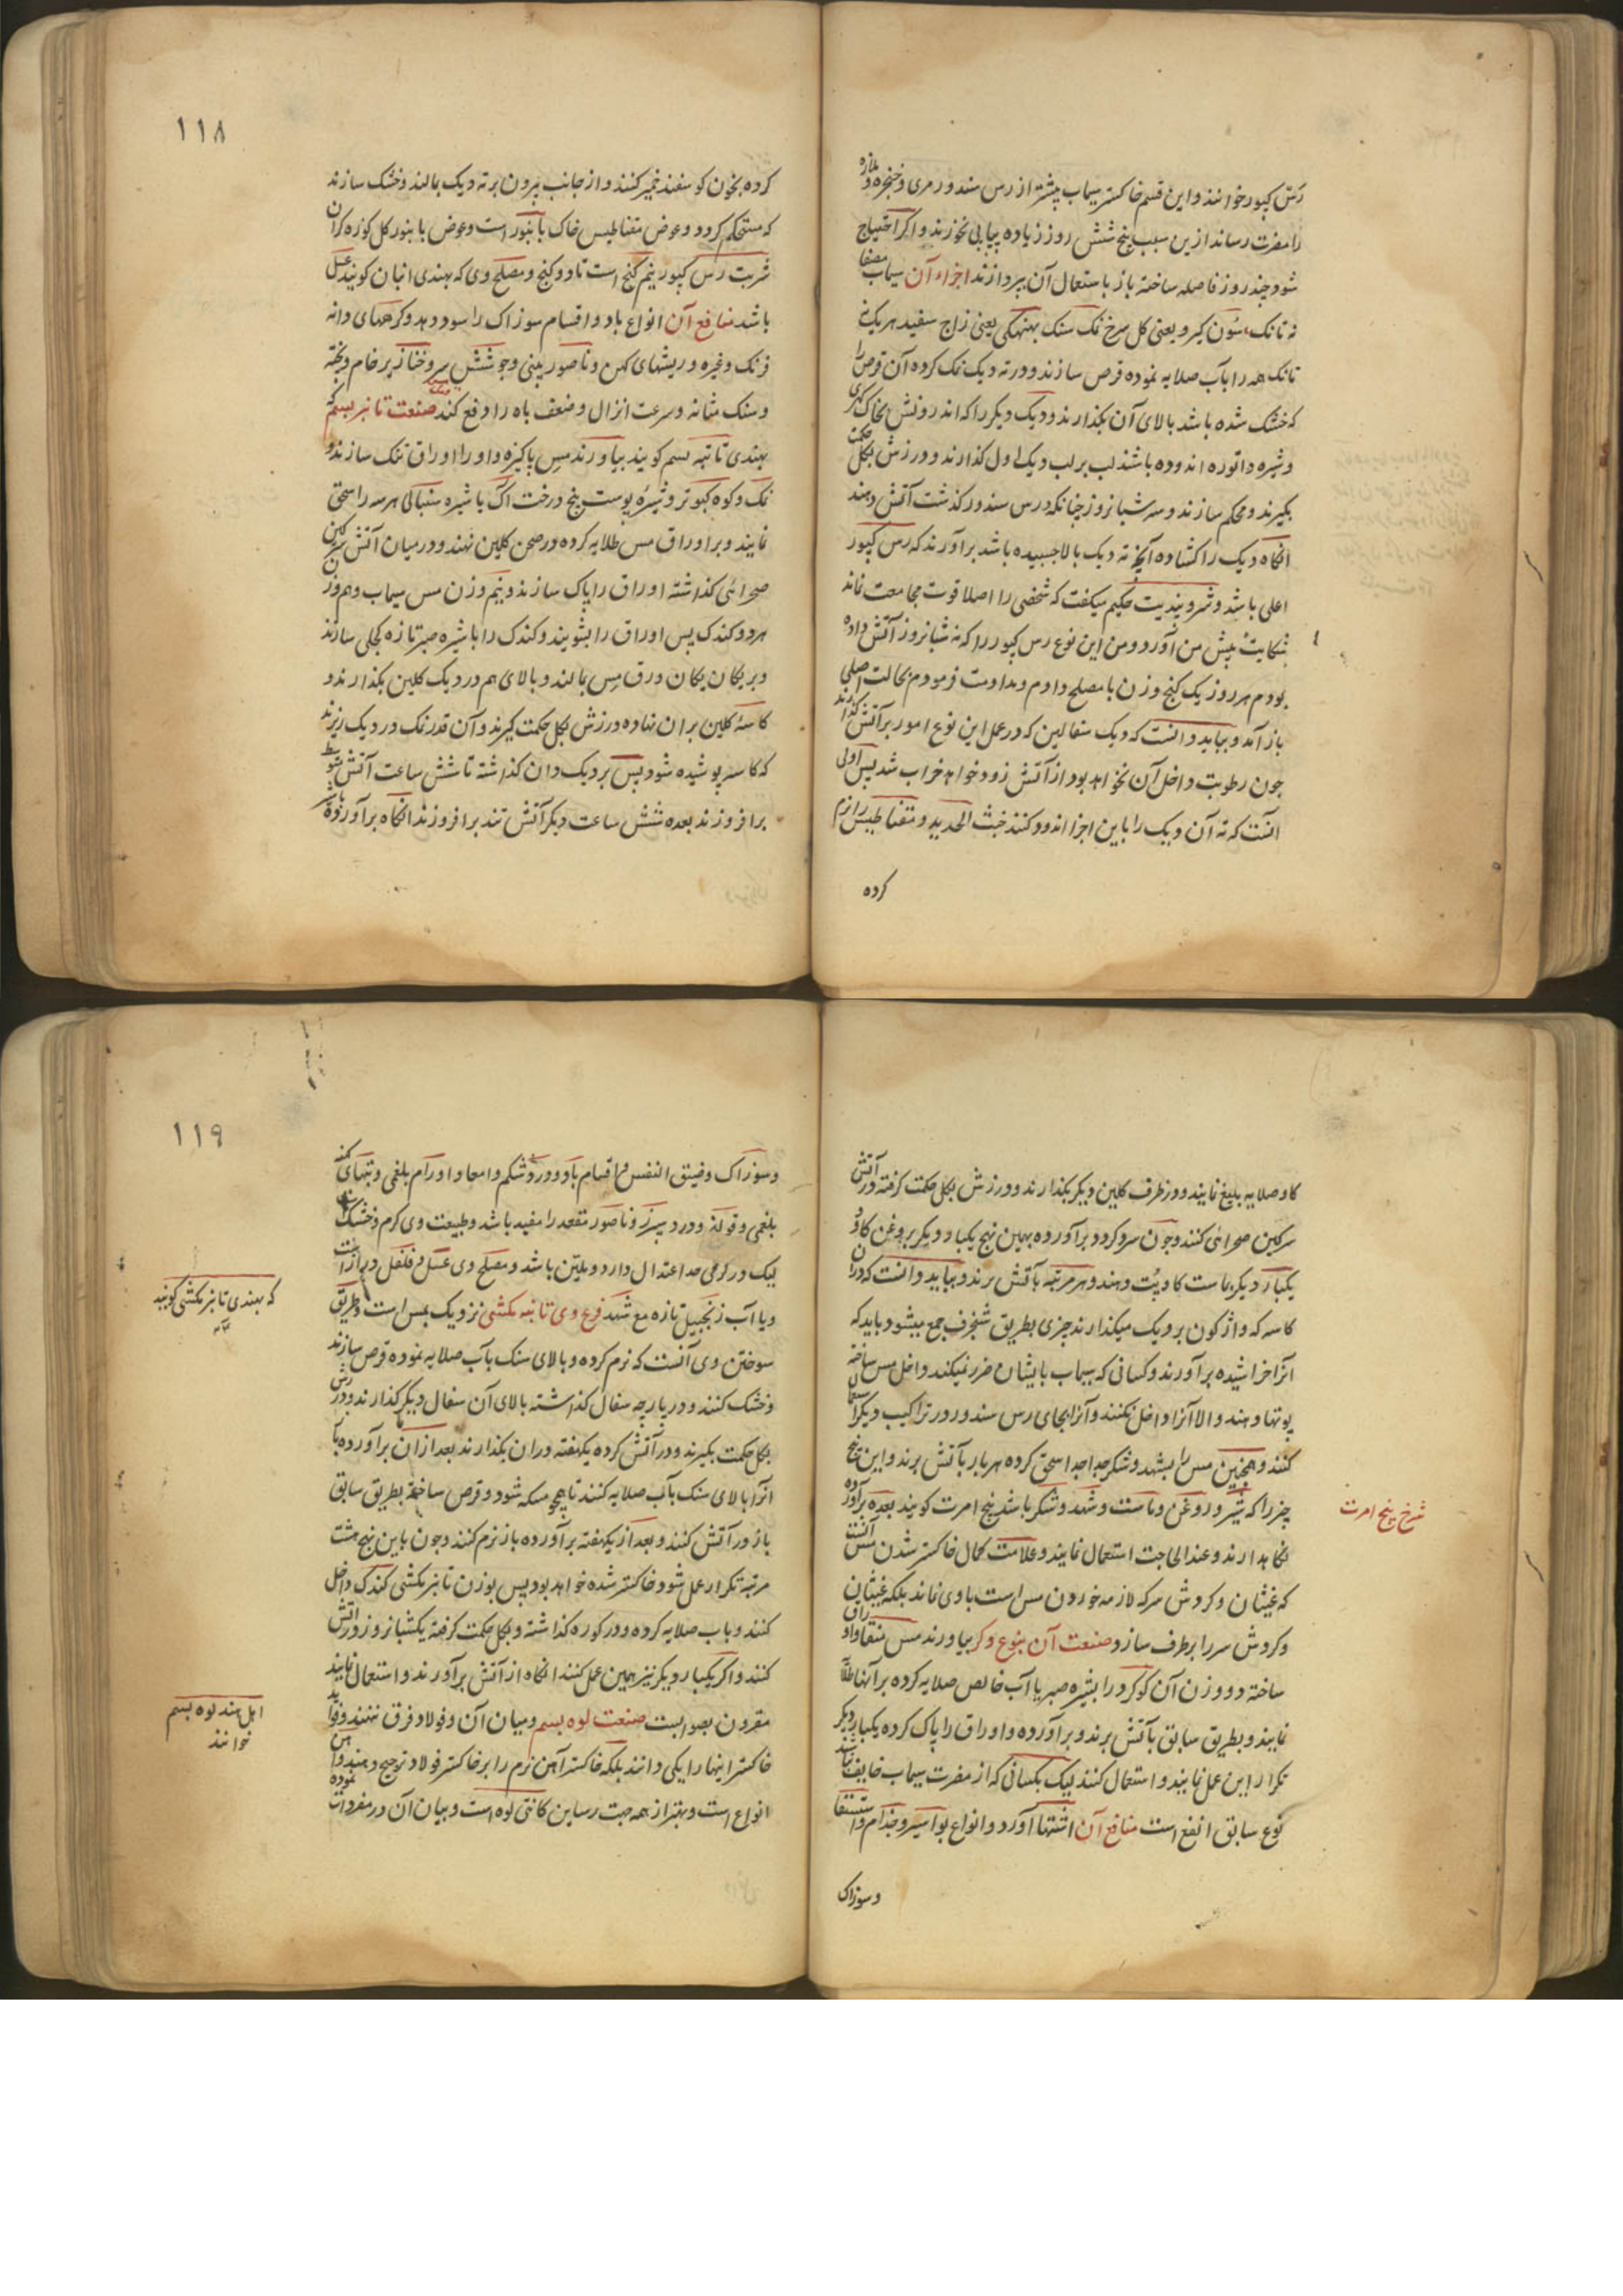 رس کپور خوانند و این قسم خاکستر سیماب بیشتر از رس سندور مری و حنجره و ملازه
را مضرت رساند ازین سبب پنج شش روز زیاده پیاپی نخورند و اکر احتیاج
شود چند روز فاصله ساخته باز باستعمال آن پردازند اجزاء آن سیماب مصفا
نه تانک سون کیرو یعنی کل سرخ نمک سنک بهتهکی یعنی زاج سفید هر یک نه
تانک همه را بآب صلایه نموده قرص سازند و در ته دیک نمک کرده آن قرص را
که خشک شده باشد بالای آن بکذارند و دیک دیکر را که اندرونش بخاک
و شیره داتوره اندوده باشند لب بر لب دیک اول کذارند و درزش بکل حکمت
بکیرند و محکم سازند و سه شبانروز چنانکه در رس سندور کذشت آتش دهند
انکاه دیک را کشاده آنچه ته دیک بالا چسبیده باشد برآورند که رس کپور
اعلی باشد و شرویندیت حکیم میکفت که شخصی را اصلا قوت مجامعت نماند
شکایت پیش من آورد و من این نوع رس کپور را که نه شبانروز آتش داده
بودم هر روز یک کنج وزن با مصلح دادم و مداومت فرمودم بحالت اصلی
باز آمد و بباید دانست که دیک سفالین که در عمل این نوع امور بر آتش کذارند
چون رطوبت داخل آن نخواهد بود از آتش زود خواهد خراب شد پس اولی
آنست که ته آن دیک را باین اجزا اندود کنند خبث الحدید و مقناطیس را نرم
کرده
۱۱۸
کرده بخون کوسفند خمیر کنند و از جانب بیرون بر ته دیک بمالند و خشک سازند
که مستحکم کردد و عوض مقناطیس خاک بانبور است و عوض بانبور کل کوزه کران
شربت رس کپور نیم کنج است تا دو کنج و مصلح وی که بهندی انبان کویند عسل
باشد منافع آن انواع باد و اقسام سوزاک را سود دهد و کرههای دانه
فرنک و غیره و ریشهای کهن و ناصور بینی و جوشش سر و خنازیر خام و پخته
و سنک مثانه و سرعت انزال و ضعف باه را دفع کند صنعت تانبر بسم که
بهندی تانبه بسم کویند بیاورند مس پاکیزه و او را اوراق تنک سازند و
نمک و کوه کبوتر و شیره پوست بیخ درخت اک با شیره سنبالی هر سه را سحق
نمایند و بر اوراق مس طلایه کرده در صحن کلین نهند و در میان آتش سرکین
صحرائی کذاشته اوراق را پاک سازند و نیم وزن مس سیماب و هم وزن
هر دو کندک پس اوراق را بشویند و کندک را با شیره صبر تازه کجلی سازند
و بر یکان یکان ورق مس بمالند و بالای هم در دیک کلین بکذارند و
کاسه کلین بران نهاده درزش بکل حکمت کیرند و آن قدر نمک در دیک ریزند
که کاسه پوشیده شود پس بر دیک دان کذاشته تا شش ساعت آتش متوسط
برافروزند بعده شش ساعت دیکر آتش تند برافروزند انکاه برآورده
کاو صلایه بلیغ نمایند و در ظرف کلین دیکر بکذارند و درزش بکل حکمت کرفته در آتش
سرکین صحرائی کنند و چون سرد کردد برآورده بهمین نهج یکبار دیکر بروغن کاو
یکبار دیکر بماست کاو پت دهند و هر مرتبه بآتش برند و بباید دانست که دران
کاسه که واژکون بر دیک میکذارند چیزی بطریق شنجرف جمع میشود باید که
آنرا خراشیده برآورند و کسانی که سیماب بایشان ضرر نمیکند داخل مس ساخته
پوتها دهند و الا آنرا داخل نکنند و آنرا بجای رس سندور در تراکیب دیکر استعمال
کنند و همچنین مس را بشهد و شکر جدا جدا سحق کرده هر بار بآتش برند و این پنج
چیز را که شیر و روغن و ماست و شهد و شکر باشد پنج امرت کویند بعده برآورده
نکاهدارند و عند الحاجت استعمال نمایند و علامت کمال خاکستر شدن مس آنست
که غیثان و کردش سر که لازمه خوردن مس است با وی نماند بلکه غیثان
و کردش سر را برطرف سازد صنعت آن بنوع دکر بیاورند مس منقا و اوراق
ساخته دو وزن آن کوکرد را بشیره صبر یا آب خالص صلایه کرده بر آنها طلا
نمایند و بطریق سابق بآتش برند و برآورده و اوراق را پاک کرده یکبار دیکر
تکرار این عمل نمایند و استعمال کنند لیک بکسانی که از مضرت سیماب خایف باشند
نوع سابق انفع است منافع آن اشتها آورد و انواع بواسیر و جذام و استسقا
شرح پنج امرت
و سوزاک
۱۱۹
و سوزاک و ضیق النفس و اقسام باد و درد شکم و امعا و اورام بلغمی و تبهای کهنه
بلغمی و قولنج و درد سپرز و ناصور مقعد را مفید باشد و طبیعت وی کرم و خشک است
لیک در کرمی حد اعتدال دارد و ملین باشد و مصلح وی عسل و فلفل دراز است
و یا آب زنجبیل تازه مع شهد فرع وی تانبه مکشی نزدیک بمس است و طریق
سوختن وی آنست که نرم کرده و بالای سنک بآب صلایه نموده قرص سازند
و خشک کنند و در پارچه سفال کذاشته بالای آن سفال دیکر کذارند و درزش
بکل حکمت بکیرند و در آتش کرده یکهفته دران بکذارند بعد ازان برآورده باز
آنرا بالای سنک بآب صلایه کنند تا همچو مسکه شود و قرص ساخته بطریق سابق
باز در آتش کنند و بعد از یکهفته برآورده باز نرم کنند و چون باین نهج هشت
مرتبه تکرار عمل شود خاکستر شده خواهد بود پس بوزن تانبر مکشی کندک داخل
کنند و بآب صلایه کرده و در کوزه کذاشته و بکل حکمت کرفته یکشبانروز در آتش
کنند و اکر یکبار دیکر نیز همین عمل کنند انکاه از آتش برآورند و استعمال نمایند
مقرون بصوابست صنعت لوه بسم و میان آن و فولاد فرق ننهند و فواید
خاکستر اینها را یکی دانند بلکه خاکستر آهن نرم را بر خاکستر فولاد ترجیح دهند و آهن
انواع است و بهتر از همه جهت رساین کانتی لوه است و بیان آن در مفردات نموده
که بهندی تانبر مکشی کویند
اهل هند لوه بسم
خوانند